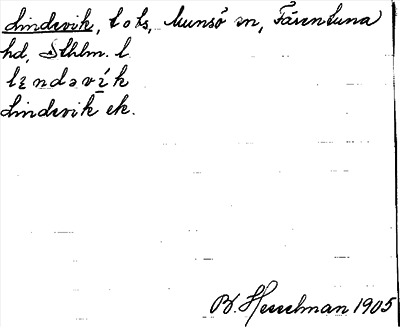 Lindsvik, t. o. ks, Munsö sn, Färentuna
hd, Sthlm. l.
lındəvík
Lindsvik ek.
B. Hesselman 1905